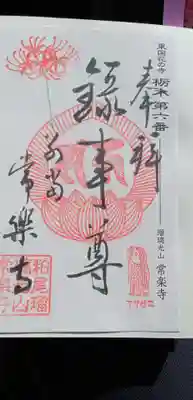 東国花の寺
栃木第六番
奉拝
録事尊
別当
常樂寺
瑠璃光山 常楽寺